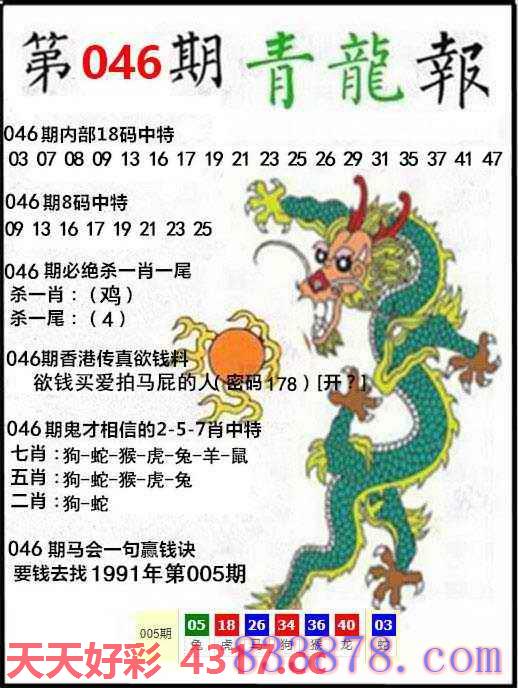 第046期 青龍報
046期内部18码中特
03 07 08 09 13 16 17 19 21 23 25 26 29 31 35 37 41 47
046期8码中特
09 13 16 17 19 21 23 25
046期必绝杀一肖一尾
杀一肖：（鸡）
杀一尾：（4）
046期香港传真欲钱料
欲钱买爱拍马屁的人(密码178)[开?]
046期鬼才相信的2-5-7肖中特
七肖：狗-蛇-猴-虎-兔-羊-鼠
五肖：狗-蛇-猴-虎-兔
二肖：狗-蛇
046期马会一句赢钱诀
要钱去找1991年第005期
005期 05 18 26 34 36 40 03
兔 虎 马 狗 猴 龙 蛇
天天好彩 4317.cc